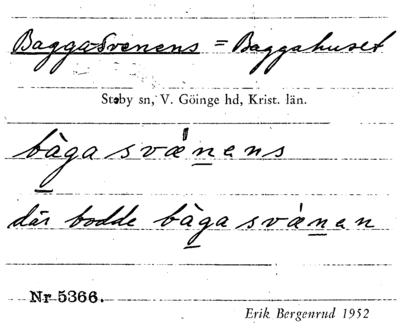 Bagga-Svenens = Baggahuset
Stoby sn, V. Göinge hd, Krist. län.
bàga svǽnens
där bodde bàga svǽnen
Nr 5366.
Erik Bergenrud 1952